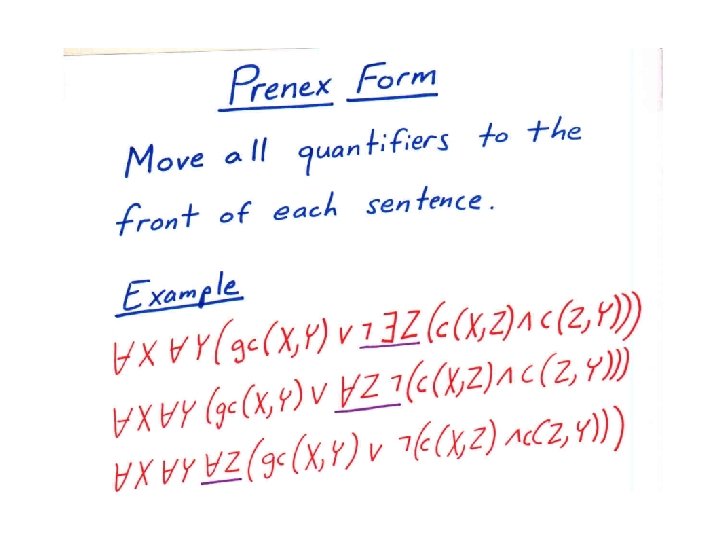 Prenex Form
Move all quantifiers to the
front of each sentence.
Example
∀X ∀Y(gc(X,Y) ∨ ¬∃Z(c(X,Z)∧c(Z,Y)))
∀X∀Y (gc(X,Y) ∨ ∀Z ¬(c(X,Z)∧c(Z,Y)))
∀X ∀Y ∀Z(gc(X,Y) ∨ ¬(c(X,Z) ∧c(Z,Y)))